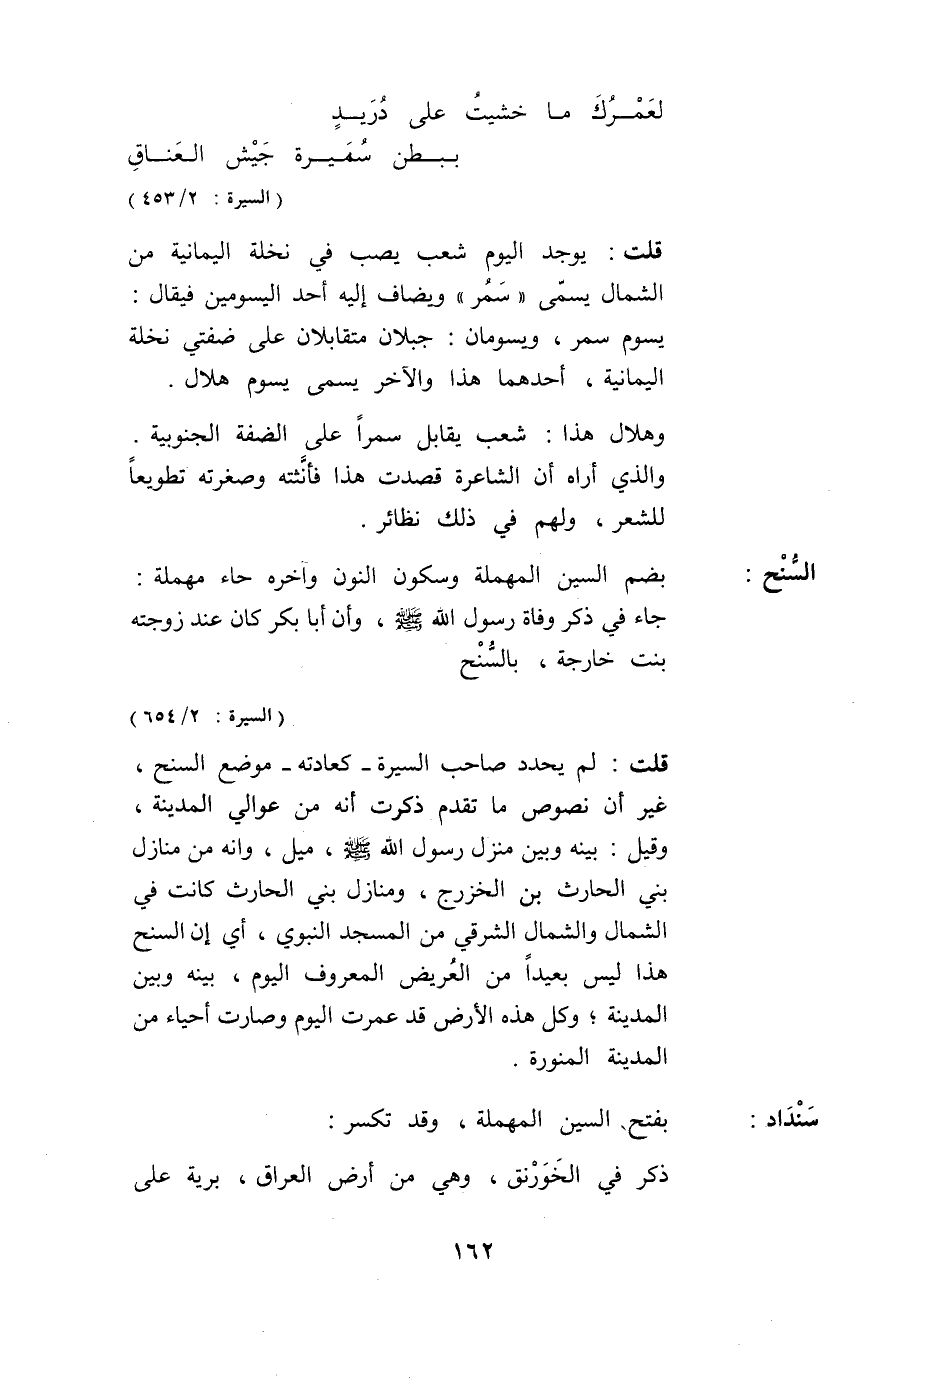 لعَمْـرُكَ ما خشيتُ على دُرَيـدٍ
بـبـطن سُمَـيـرة جَيْش العَناقِ
(السيرة : ٢/ ٤٥٣)
قلت : يوجد اليوم شعب يصب في نخلة اليمانية من
الشمال يسمّى « سَمُر » ويضاف إليه أحد اليسومين فيقال :
يسوم سمر ، ويسومان : جبلان متقابلان على ضفتي نخلة
اليمانية ، أحدهما هذا والآخر يسمى يسوم هلال .
وهلال هذا : شعب يقابل سمراً على الضفة الجنوبية .
والذي أراه أن الشاعرة قصدت هذا فأنَّثته وصغرته تطويعاً
للشعر ، ولهم في ذلك نظائر .
السُّنْح : بضم السين المهملة وسكون النون وآخره حاء مهملة :
جاء في ذكر وفاة رسول الله ﷺ ، وأن أبا بكر كان عند زوجته
بنت خارجة ، بالسُّنْح
(السيرة : ٢/ ٦٥٤)
قلت : لم يحدد صاحب السيرة ـ كعادته ـ موضع السنح ،
غير أن نصوص ما تقدم ذكرت أنه من عوالي المدينة ،
وقيل : بينه وبين منزل رسول الله ﷺ ، ميل ، وانه من منازل
بني الحارث بن الخزرج ، ومنازل بني الحارث كانت في
الشمال والشمال الشرقي من المسجد النبوي ، أي إن السنح
هذا ليس بعيداً من العُريض المعروف اليوم ، بينه وبين
المدينة ؛ وكل هذه الأرض قد عمرت اليوم وصارت أحياء من
المدينة المنورة .
سَنْدَاد : بفتح السين المهملة ، وقد تكسر :
ذكر في الخَوَرْنق ، وهي من أرض العراق ، برية على
١٦٢